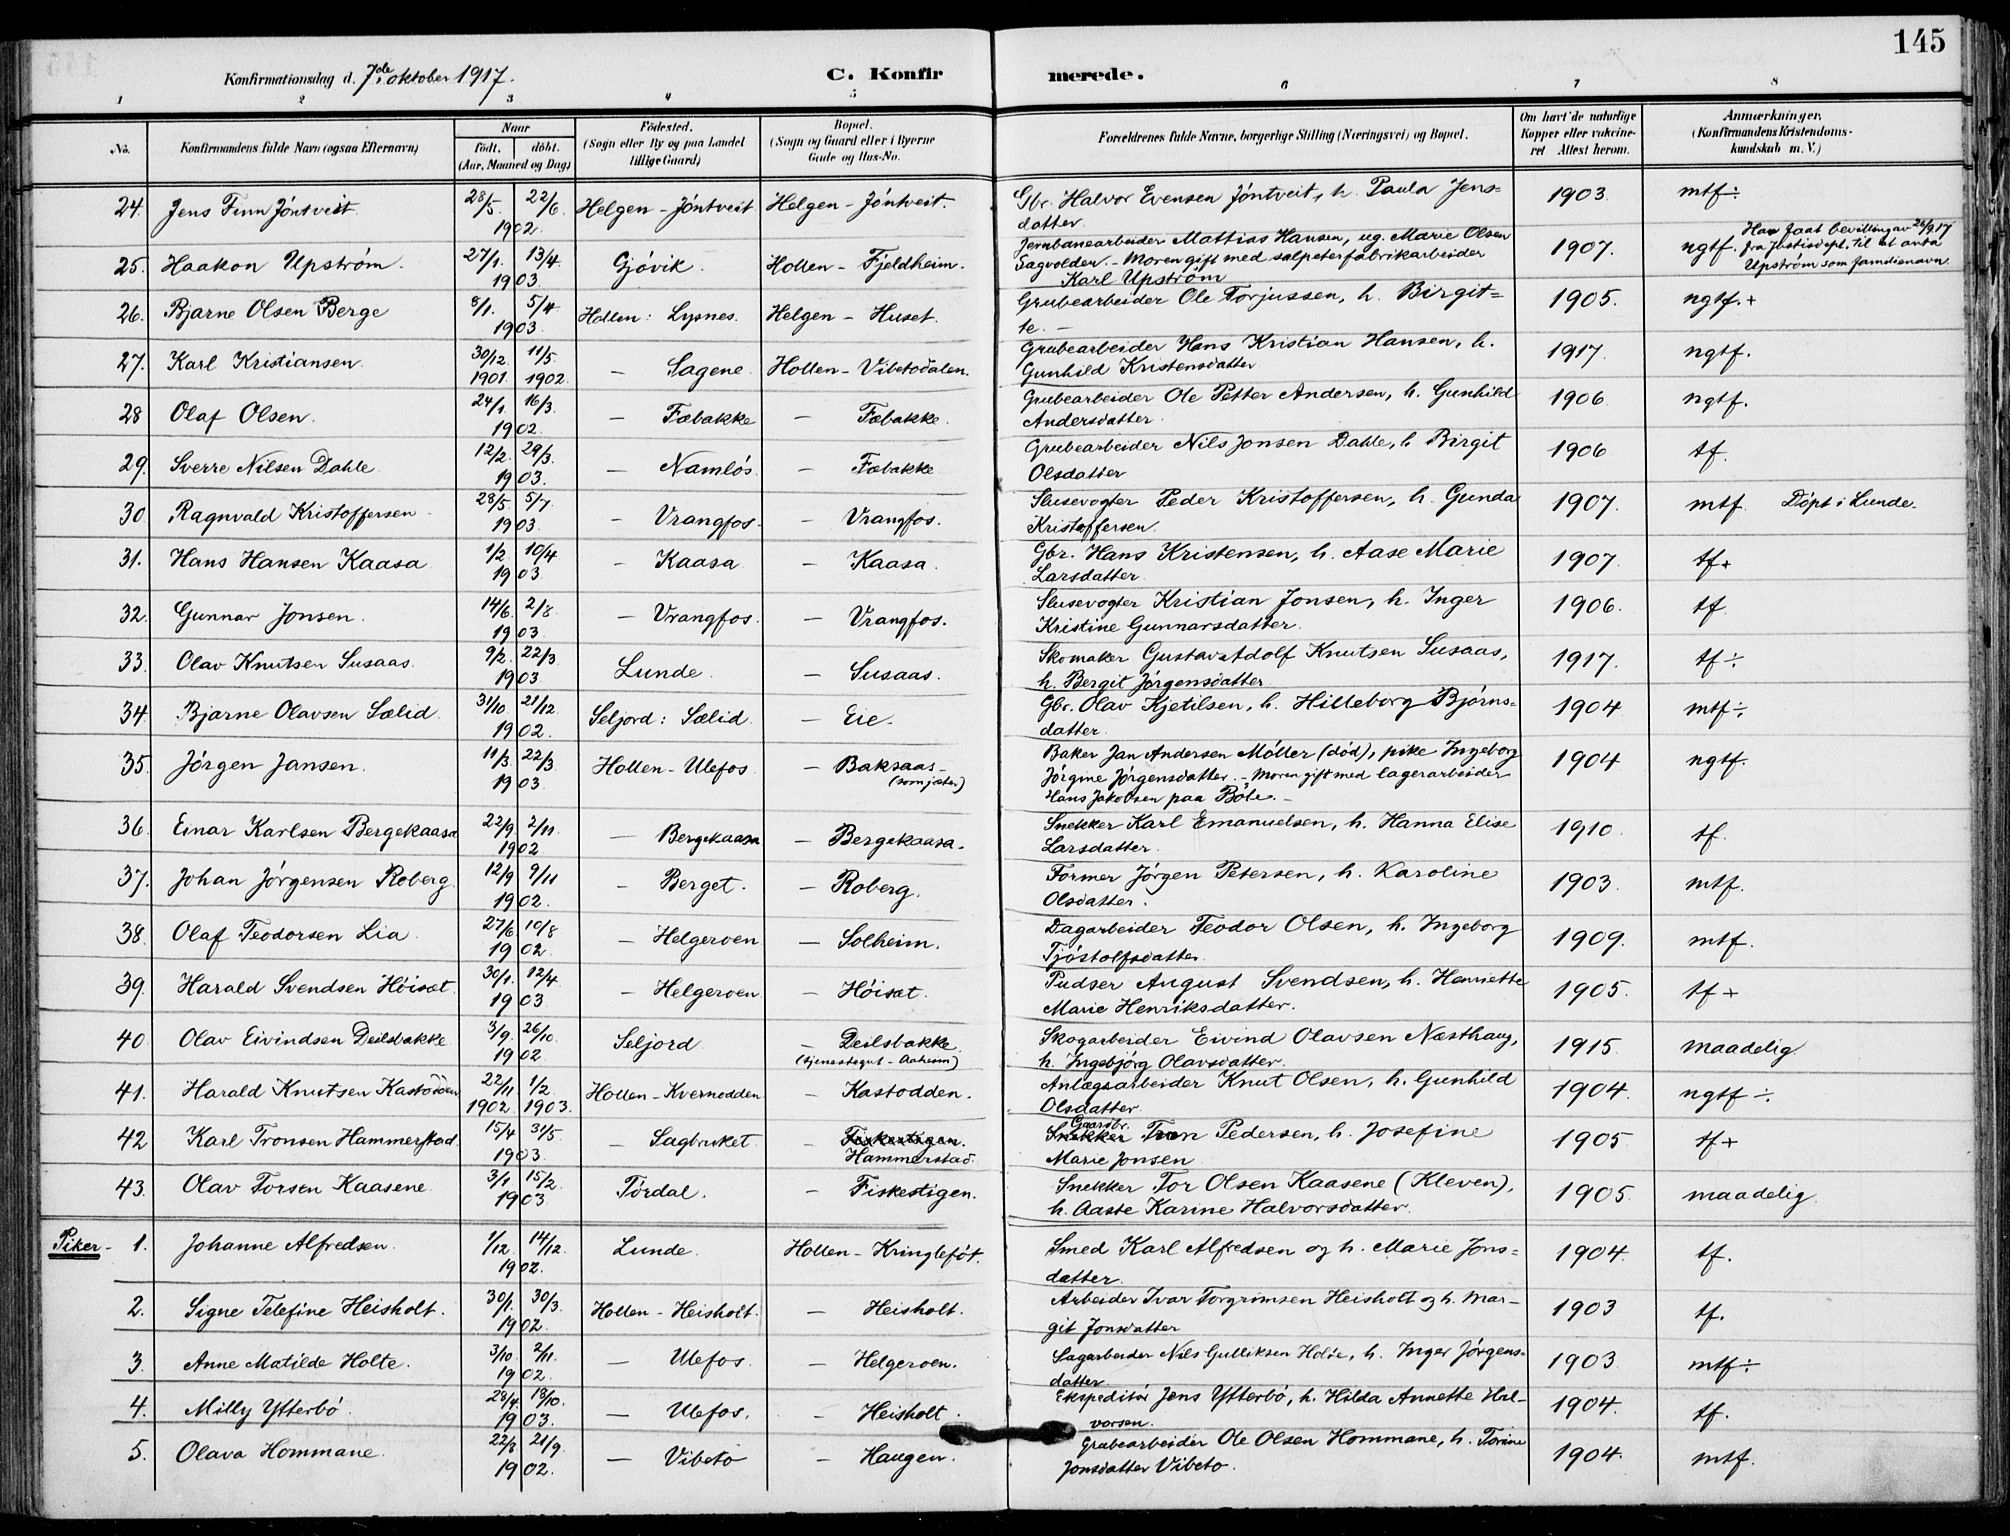 145
Konfirmationsdag d. 7de oktober 1917. C. Konfirmerede.
1 2 3 4 5 6 7 8
No. Konfirmandens fulde Navn (ogsaa Efternavn) Naar födt. döbt. (Aar, Maaned og Dag) Födested. (Sogn eller By og paa Landet tillige Gaard) Bopæl. (Sogn og Gaard eller i Byerne Gade og Hus-No. Forældrenes fulde Navne, borgerlige Stilling (Næringsvei) og Bopæl. Om havt de naturlige Kopper eller vakcineret Attest herom. Anmerkninger. (Konfirmandens Kristendomskundskab m. V.)
24. Jens Finn Jöntveit. 28/5. 22/6. 1902. Helgen - Jöntveit Helgen - Jöntveit. Gbr. Halvor Evensen Jöntveit, h. Paula Jens= 1903. mtf ÷
datter.
25. Haakon Upström. 27/1. 13/4. 1903 Gjövik. Hollen - Fjeldheim. Jernbanearbeider Mattias Hansen, ug. Marie Olsen 1907. ngtf. Har faat bevilling av 26/9 17
Sagvolden. - Moren gift med salpeterfabrikarbeider fra Justisdept. til at anta
Karl Upström Upström som familienavn.
26. Bjarne Olsen Berge 8/1. 5/4 1903. Hollen: Lysnes. Helgen - Huset. Grubearbeider Ole Torjussen, h. Birgit= 1905. ngtf. +
te. -
27. Karl Kristiansen. 30/12 1901. 11/5. 1902. - Sagene Hollen - Vibetodalen. Grubearbeider Hans Kristian Hansen, h. 1917. ngtf.
Gunhild Kristensdatter
28 Olaf Olsen. 24/1. 16/3. 1902. - Fæbakke - Fæbakke. Grubearbeider Ole Petter Andersen, h. Gunhild 1906 ngtf.
Andersdatter.
29. Sverre Nilsen Dahle. 12/2. 29/3. 1903. - Namlös. - Fæbakke Grubearbeider Nils Jonsen Dahle, h. Birgit 1906 tf.
Olsdatter
30 Ragnvald Kristoffersen 28/5. 5/7. 1903. - Vrangfos. - Vrangfos. Slusevogter Peder Kristoffersen, h. Gunda 1907. mtf. Döpt i Lunde.
Kristoffersen.
31. Hans Hansen Kaasa 1/2. 10/4 1903. - Kaasa - Kaasa. Gbr. Hans Kristensen, h. Aase Marie 1907. tf+
Larsdatter.
32. Gunnar Jonsen. 14/6. 2/8. 1903. - Vrangfos. - Vrangfos. Slusevogter Kristian Jonsen, h. Inger 1906. tf.
Kristine Gunnarsdatter.
33. Olav Knutsen Susaas. 9/2. 22/3. 1903 Lunde. - Susaas. Skomaker Gustav Adolf Knutsen Susaas, 1917. tf ÷.
h. Bergit Jörgensdatter
34. Bjarne Olavsen Sælid. 31/10 21/12. 1902. Seljord: Sælid. - Eie. Gbr. Olav Kjetilsen, h. Hilleborg Björns= 1904 mtf ÷.
datter.
35. Jörgen Jansen. 11/3 22/3. 1903. Hollen - Ulefos - Baksaas- Baker Jan Andersen Möller (död), pike Ingeborg 1904 ngtf.
(som gjæter) Jörgine Jörgensdatter. - Moren gift med lagerarbeider
Hans Jakobsen paa Böle. -
36. Einar Karlsen Bergekaasa 22/9. 2/11. 1902 - Bergekaasa - Bergekaasa. Snekker Karl Emanuelsen, h. Hanna Elise 1910 tf.
Larsdatter.
37. Johan Jörgensen Roberg. 12/9 9/11 1902. - Berget. - Roberg. Former Jörgen Petersen, h. Karoline 1903. mtf.
Olsdatter.
38. Olaf Teodorsen Lia. 27/6 10/8 1902. - Helgeroen - Solheim. Dagarbeider Teodor Olsen, h. Ingeborg 1909. mtf.
Tjöstolfsdatter.
39. Harald Svendsen Höisæt. 30/1. 12/4. 1903. - Helgeroen - Höisæt. Pudser August Svendsen, h. Henriette 1905. tf +
Marie Henriksdatter.
40. Olav Eivindsen Deilsbakke. 3/9. 26/10. 1902. Seljord - Deilsbakke. Skogarbeider Eivind Olavsen Næsthaug, 1915. maadelig.
(tjenestegut - Aaheim) h. Ingebjörg Olavsdatter.
41. Harald Knutsen Kastodden 22/11 1902 1/2. 1903. Hollen - Kvernodden - Kastodden. Anlægsarbeider Knut Olsen, h. Gunhild 1904. ngtf ÷.
Olsdatter.
42 Karl Tronsen Hammerstad. 15/4 31/5. 1903. - Sagbruket. - Fiskestigen. Snekker Gaardbr. Tron Pedersen, h. Josefine 1905. tf+
Hammerstad. Marie Jonsen
43. Olav Torsen Kaasene. 3/1 15/2. 1903. Tördal. - Fiskestigen. Snekker Tor Olsen Kaasene (Kleven), 1905. maadelig.
h. Aaste Karine Halvorsdatter.
Piker - 1. Johanne Alfredsen. 1/12. 14/12. 1902. Lunde. Hollen - Kringleföt. Smed Karl Alfredsen og h. Marie Jons= 1904. tf.
datter.
2. Signe Telefine Heisholt. 30/1. 30/3. 1902. Hollen - Heisholt. - Heisholt. Arbeider Ivar Torgrimsen Heisholt og h. Mar- 1903 tf.
git Jonsdatter
3. Anne Matilde Holte. 3/10. 2/11. 1902. - Ulefos. - Helgeroen. Sagarbeider Nils Gulliksen Holte, h. Inger Jörgens- 1903. mtf ÷.
datter.
4. Milly Ytterbö. 28/4. 18/10. 1903. - Ulefos. - Heisholt. Ekspeditör Jens Ytterbö, h. Hilda Annette Hal- 1904. tf.
vorsen.
5. Olava Hommane. 22/8 21/9. 1902. - Vibeto - Haugen. Grubearbeider Ole Olsen Hommane, h. Torine 1904. mtf.
Jonsdatter Vibeto.